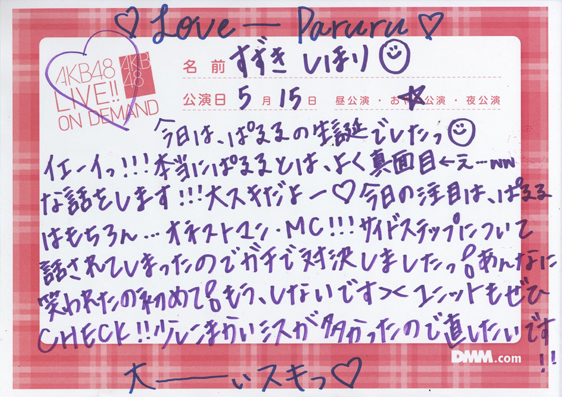 ♡ Love — Paruru ♡
AKB48
LIVE!!
ON DEMAND
AKB
48
名前 すずき しほり
公演日 5月15日 昼公演・お☆公演・夜公演
今日は、ぱるるの生誕でしたっ
イエーイっ!!!本当にぱるるとは、よく真面目←え…ww
な話をします!!!大スキだよー♡今日の注目は、ぱるる
はもちろん…オネストマン・MC!!!サイドステップについて
話されてしまったのでガチで対決しましたっ。あんなに
笑われたの初めて。もう、しないです>< ユニットもぜひ
CHECK!!少しこまかいミスが多かったので直したいです!!
DMM.com
大———いスキっ♡